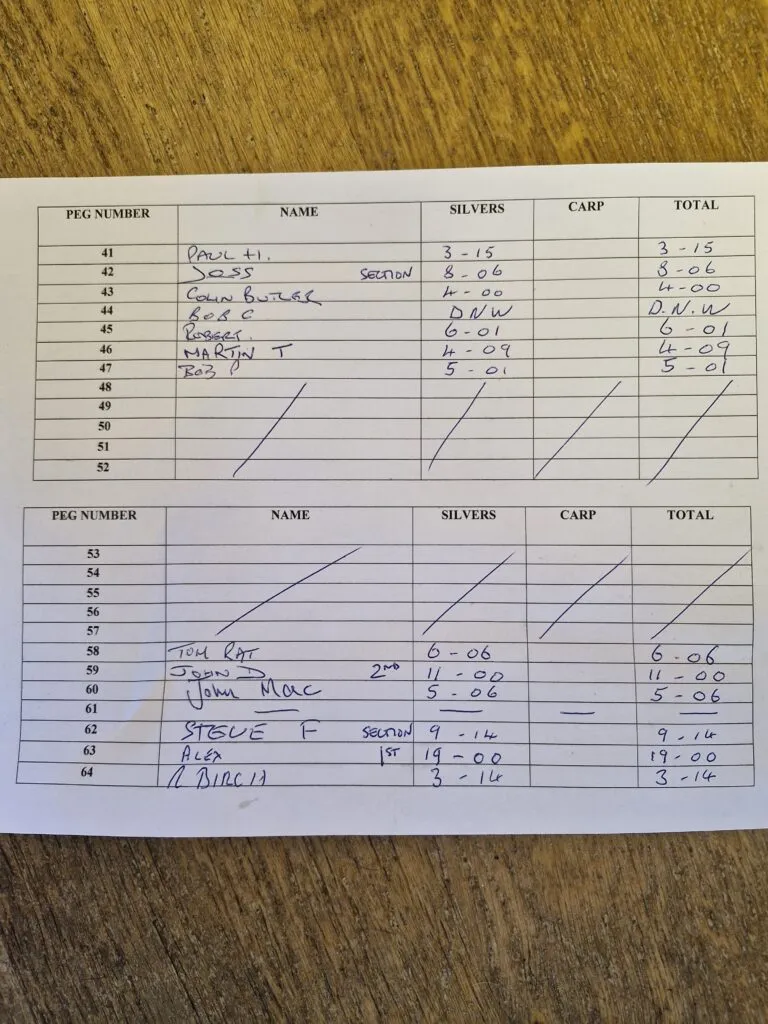 PEG NUMBER NAME SILVERS CARP TOTAL
41 PAUL H. 3-15 3-15
42 JOSS SECTION 8-06 8-06
43 COLIN BUTLER 4-00 4-00
44 BOB C DNW D.N.W
45 ROBERT. 6-01 6-01
46 MARTIN T 4-09 4-09
47 BOB P 5-01 5-01
48
49
50
51
52
PEG NUMBER NAME SILVERS CARP TOTAL
53
54
55
56
57
58 TOM RAT 6-06 6-06
59 JOHN D 2ND 11-00 11-00
60 John Mac 5-06 5-06
61 — — — —
62 STEVE F SECTION 9-14 9-14
63 ALEX 1ST 19-00 19-00
64 BIRCH 3-14 3-14